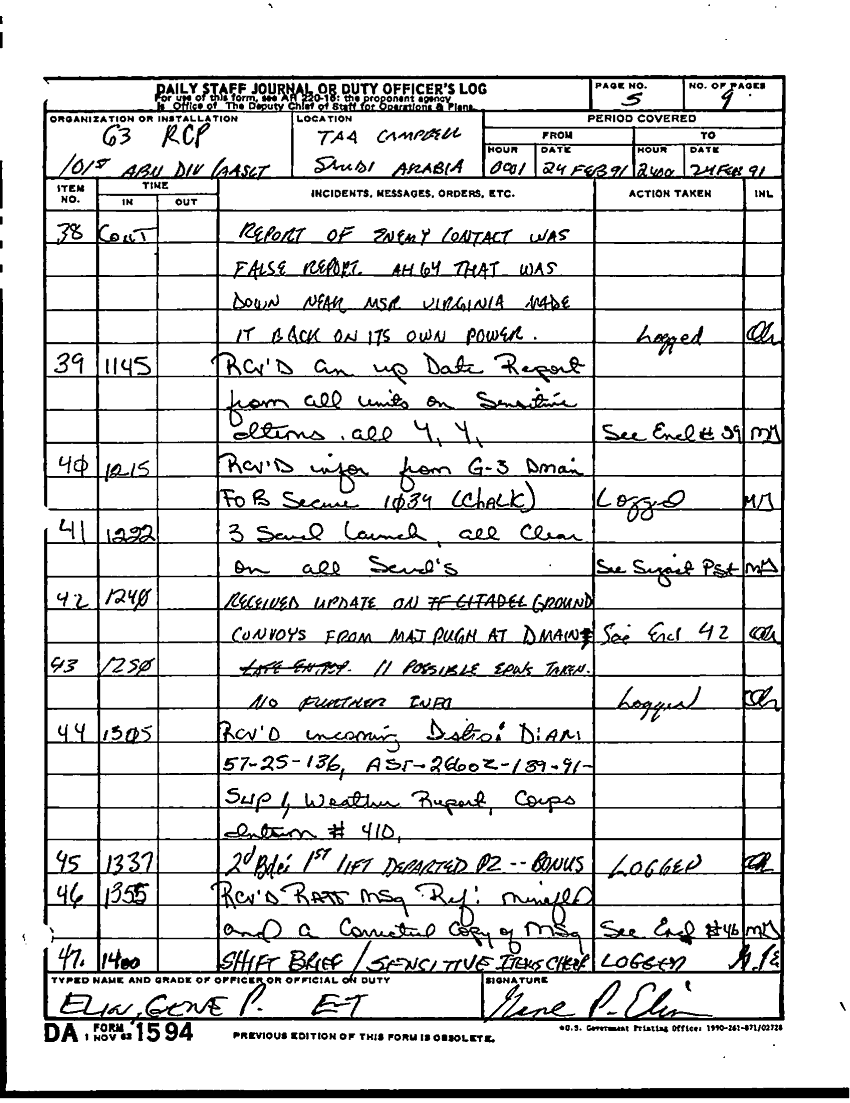 DAILY STAFF JOURNAL OR DUTY OFFICER'S LOG
For use of this form, see AR 220-15; the proponent agency
is Office of The Deputy Chief of Staff for Operations & Plans.
PAGE NO.
5
NO. OF PAGES
9
ORGANIZATION OR INSTALLATION
G3 RCP
101st ABN DIV (AASLT
LOCATION
TAA CAMPBELL
SAUDI ARABIA
PERIOD COVERED
FROM TO
HOUR DATE HOUR DATE
0001 24 FEB 91 2400 24 FEB 91
ITEM NO. TIME IN OUT INCIDENTS, MESSAGES, ORDERS, ETC. ACTION TAKEN INL
38 CONT REPORT OF ENEMY CONTACT WAS
FALSE REPORT. AH 64 THAT WAS
DOWN NEAR MSR VIRGINIA MADE
IT BACK ON ITS OWN POWER. Logged
39 1145 RCV'D an up Date Report
from all units on Sensitive
Items. all Y, Y, See Encl # 39 MM
40 1215 RCV'D infor from G-3 Dmain
FOB Secure 1039 (Chalk) Logged
41 1222 3 Scud Launch, all Clear
on all Scud's See
42 1240 RECEIVED UPDATE ON TF CITADEL GROUND
CONVOYS FROM MAJ PUGH AT DMAIN See Encl 42
43 1250 LATE ENTRY. 11 POSSIBLE EPWS TAKEN.
NO FURTHER INFO Logged
44 1305 RCV'D incoming Distro:
57-25-136,
Sup 1, Weather Report, Corps
Intsum # 410,
45 1337 2d Bde's 1ST LIFT DEPARTED PZ -- BONUS LOGGED
46 1355 RCV'D RATT MSg Ref: minefld
and a Corrected Copy of MSg See Encl #46 MM
47. 1400 SHIFT BRIEF / SENCITIVE ITEMS CHECK LOGGED
TYPED NAME AND GRADE OF OFFICER OR OFFICIAL ON DUTY
GENE P. E-7
SIGNATURE
Gene P.
DA FORM 1594
1 NOV 62
PREVIOUS EDITION OF THIS FORM IS OBSOLETE.
*U.S. Government Printing Office: 1990-261-871/02728